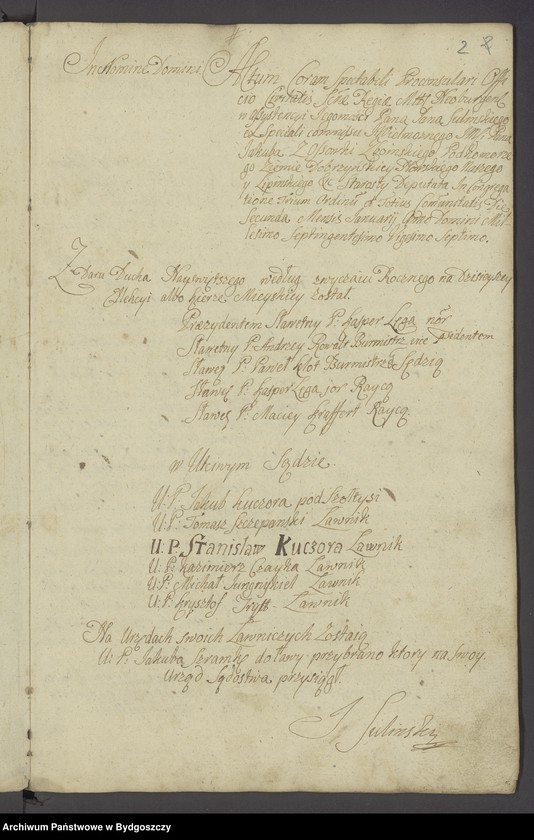 2
In Nomine Domini
Actum Coram Spectabili Proconsulari Offi
cio Civitatis
w assystencyi Jegomosci Pana Jana Sulinskiego
ex Speciali commissu Wielmoznego Pana
Jakuba Z Ossowki Zepinskiego Podkomorze
go Ziemie Dobrzynskiey Nowskiego Naszego
y Lipinskiego &c Starosty Deputata In Congrega
tione Trium Ordinū et Totius Comunitatis Die
Secunda Mensis Januarij Anno Domini Mil
lesimo Septingentesimo Vigesimo Septimo.
Z Daru Ducha Nayswiętszego według zwyczaiu Rocznego na Dzisieyszey
Elekcyi albo kierze Mieyskiey został.
Prezydentem Sławetny P: Kasper Lega
Sławetny P: Andrzey Kowalt Burmistrz vice Prezidentem
Sławeŧ P: Paweł klot Burmistrz Sędzią
Sławeŧ P: Kasper Lega jor Raycą
Sławeŧ P: Maciey Kraffert Raycą.
w Utciwym Sądzie.
U: P: Jakub Kuczora podSzołtysi
U: P: Tomasz Szczepanski Ławnik
U: P. Stanisław Kuczora Ławnik
U: P: Kazimierz Czayka Ławnik
U: P: Michał Jungnykiel Ławnik
U: P: Krysztof Trytt Ławnik
Na Urzędach swoich Ławniczych Zostaią
U: P: Jakuba Szramkę do ławy przybrano ktory na swoy
Urząd Sądostwa przysiągł.
J Sulinski
Archiwum Państwowe w Bydgoszczy